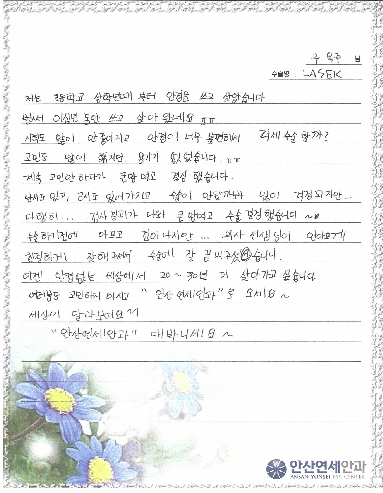 수술명 LASEK
저는 초등학교 삼학년때 부터 안경을 쓰고 살았습니다
벌써 이십년 동안 쓰고 살아 왔네요 ㅠㅠ
시력도 많이 안좋아지고 안경이 너무 불편해서 라세 수술 할까?
고민도 많이 했지만 용기가 없었습니다. ㅠㅠ
계속 고민만 하다가 큰 맘 먹고 결심 했습니다.
난시도 있고, 근시도 있어가지고 수술이 안될까봐 많이 걱정 되지만...
다행히... 검사 결과가 나와 큰맘먹고 수술 결정 했습니다 ~
수술하기전에 아프고 겁이 나지만... 의사 선생님이 안아프게
친절하게 잘 해주셔서 수술에 잘 끝마쳤습니다.
이젠 안경없는 세상에서 20~30년 더 살아가고 싶습니다.
여러분도 고민하지 마시고 "안산연세안과"로 오세요~
세상이 달라보여요 ^^
"안산연세안과" 대박나세요~
안산연세안과
ANSAN YONSEI EYE CENTER